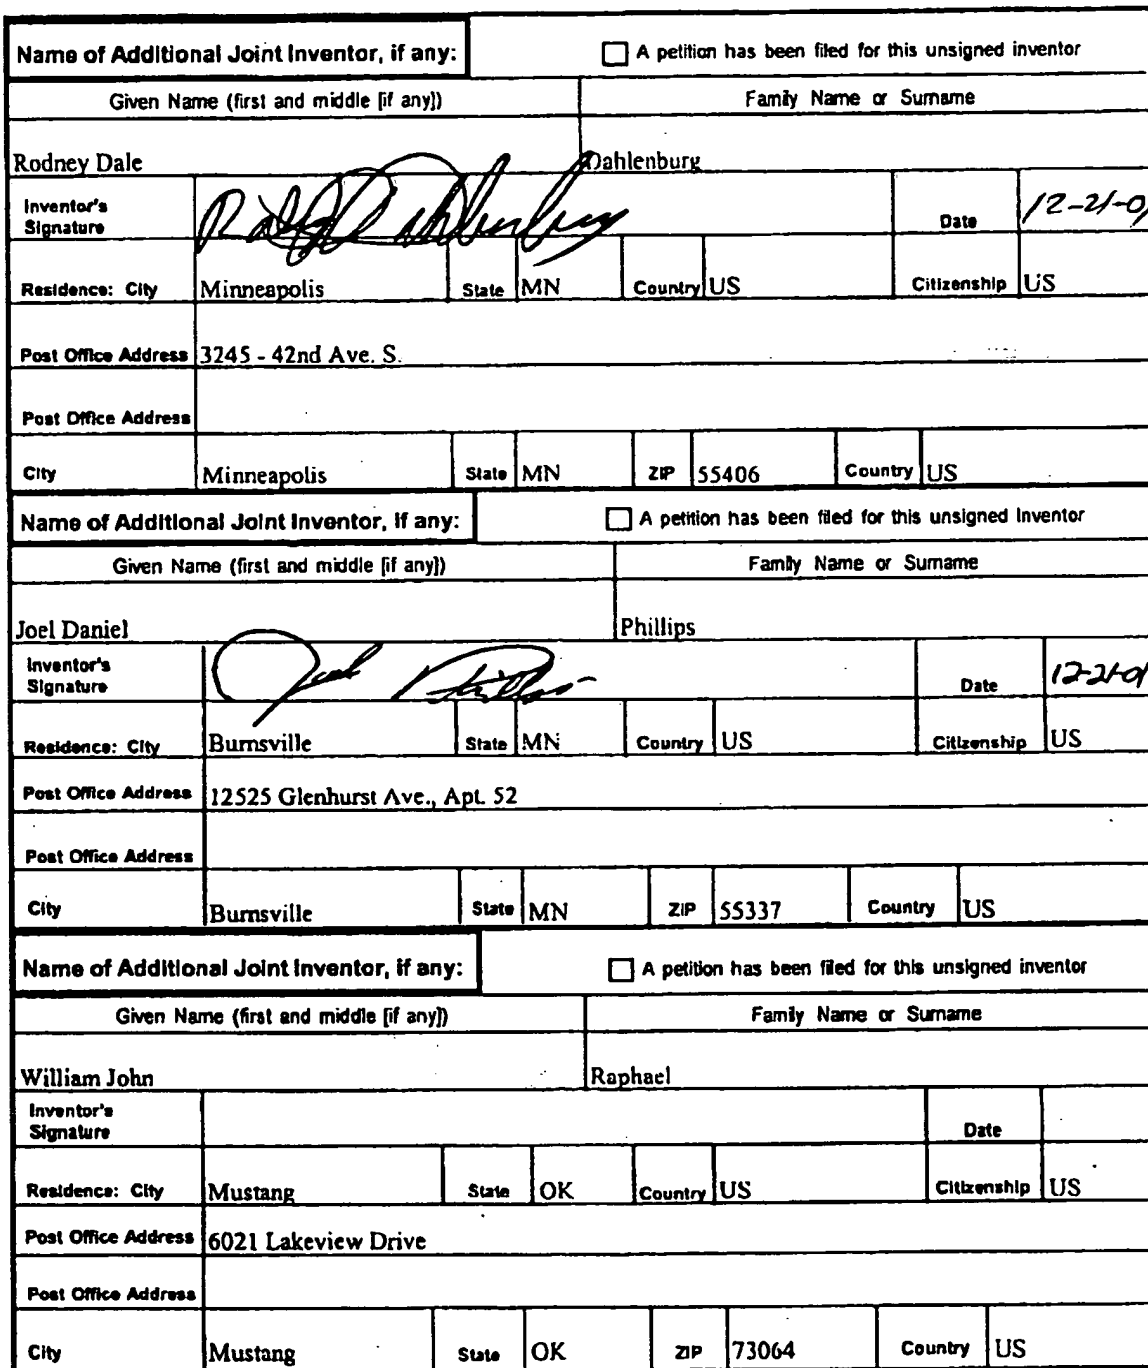 Name of Additional Joint Inventor, if any: A petition has been filed for this unsigned inventor
Given Name (first and middle [if any]) Family Name or Surname
Rodney Dale Dahlenburg
Inventor's Signature Date 12-21-01
Residence: City Minneapolis State MN Country US Citizenship US
Post Office Address 3245 - 42nd Ave. S.
Post Office Address
City Minneapolis State MN ZIP 55406 Country US
Name of Additional Joint Inventor, if any: A petition has been filed for this unsigned Inventor
Given Name (first and middle [if any]) Family Name or Surname
Joel Daniel Phillips
Inventor's Signature Joel Phillips Date 12-21-01
Residence: City Burnsville State MN Country US Citizenship US
Post Office Address 12525 Glenhurst Ave., Apt. 52
Post Office Address
City Burnsville State MN ZIP 55337 Country US
Name of Additional Joint Inventor, if any: A petition has been filed for this unsigned inventor
Given Name (first and middle [if any]) Family Name or Surname
William John Raphael
Inventor's Signature Date
Residence: City Mustang State OK Country US Citizenship US
Post Office Address 6021 Lakeview Drive
Post Office Address
City Mustang State OK ZIP 73064 Country US